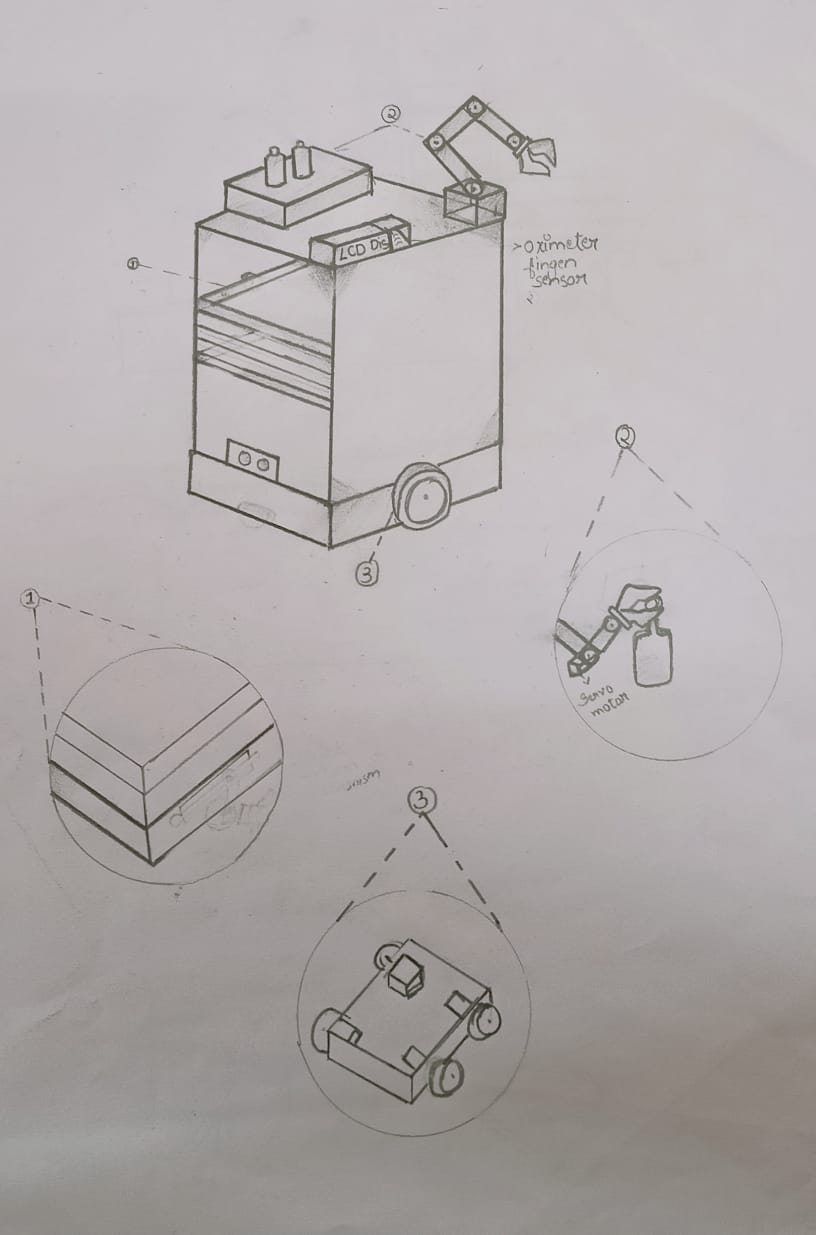 2
LCD Dis
1
> Oximeter
fingen
sensor
2
3
1
servo
motor
3